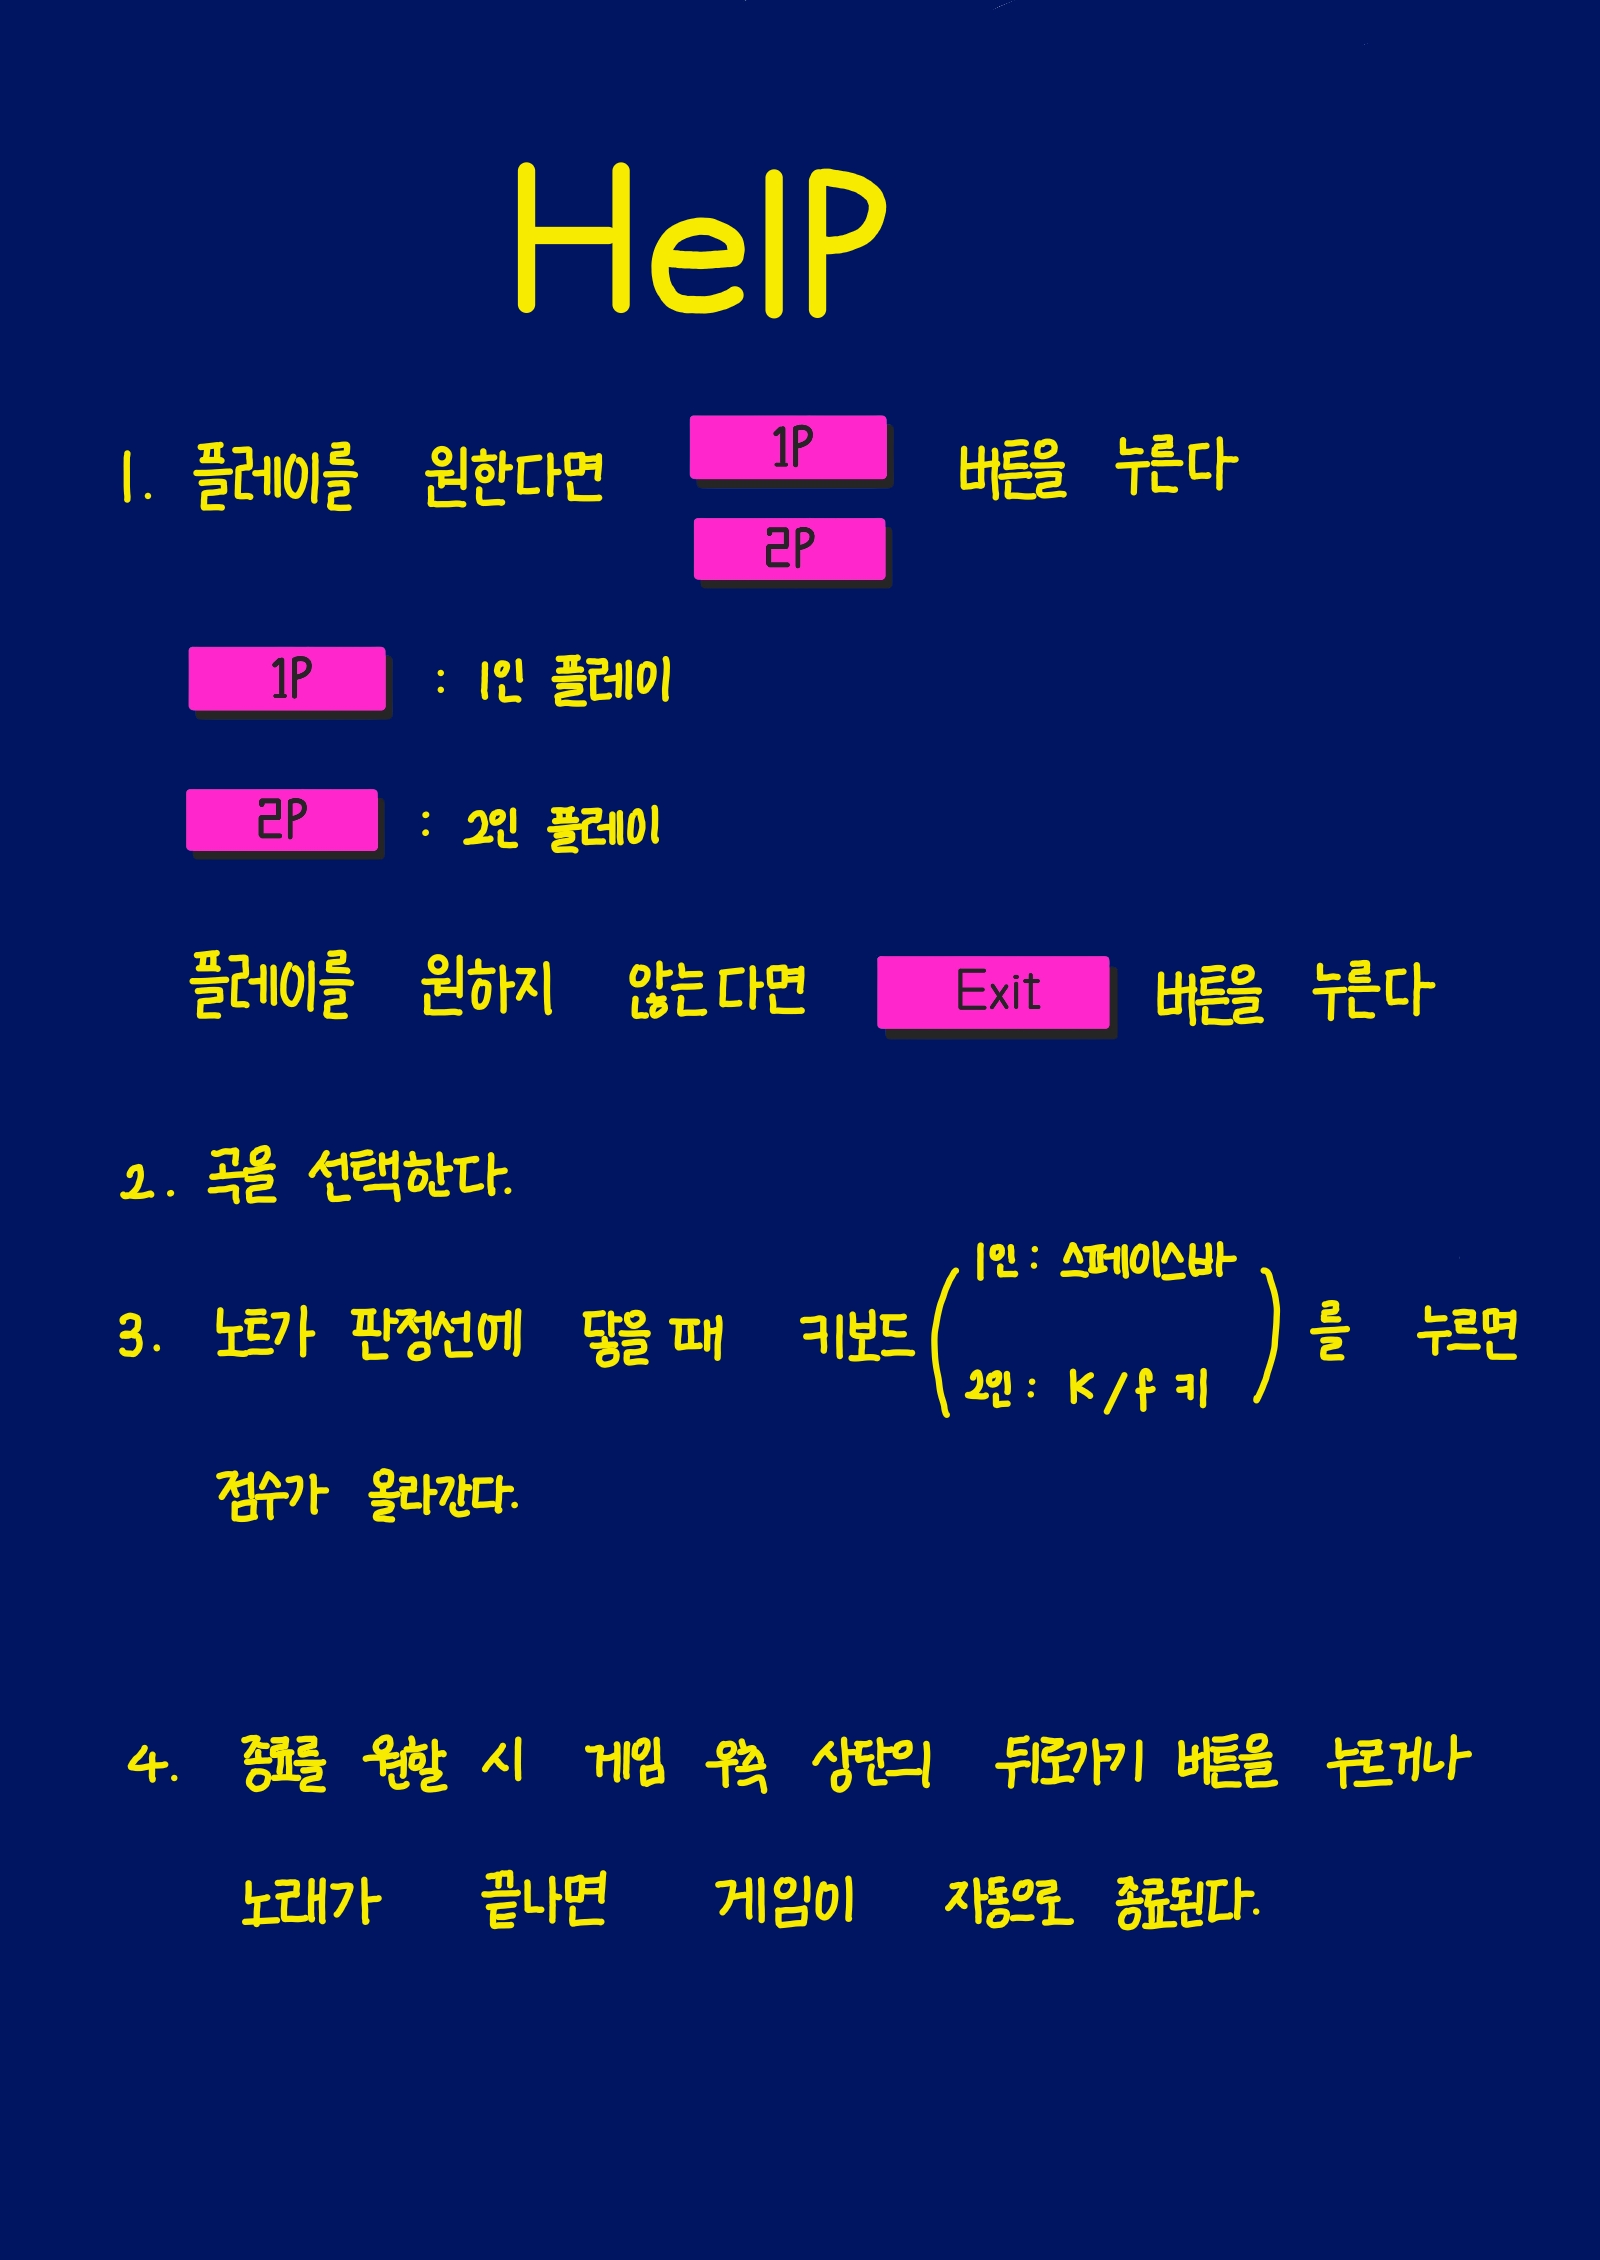 HelP
1. 플레이를 원한다면 1P 버튼을 누른다
2P
1P : 1인 플레이
2P : 2인 플레이
플레이를 원하지 않는다면 Exit 버튼을 누른다
2. 곡을 선택한다.
1인 : 스페이스바
3. 노트가 판정선에 닿을 때 키보드 ( ) 를 누르면
2인 : K / f 키
점수가 올라간다.
4. 종료를 원할 시 게임 우측 상단의 뒤로가기 버튼을 누르거나
노래가 끝나면 게임이 자동으로 종료된다.